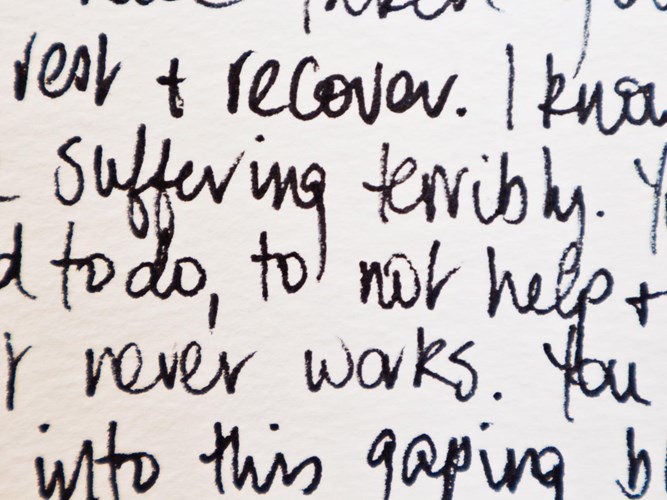 rest + recover. I know
suffering terribly.
to do, to not help +
never works. You
into this gaping